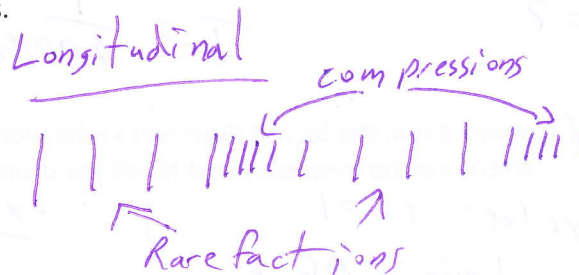 Longitudinal
compressions
Rarefactions